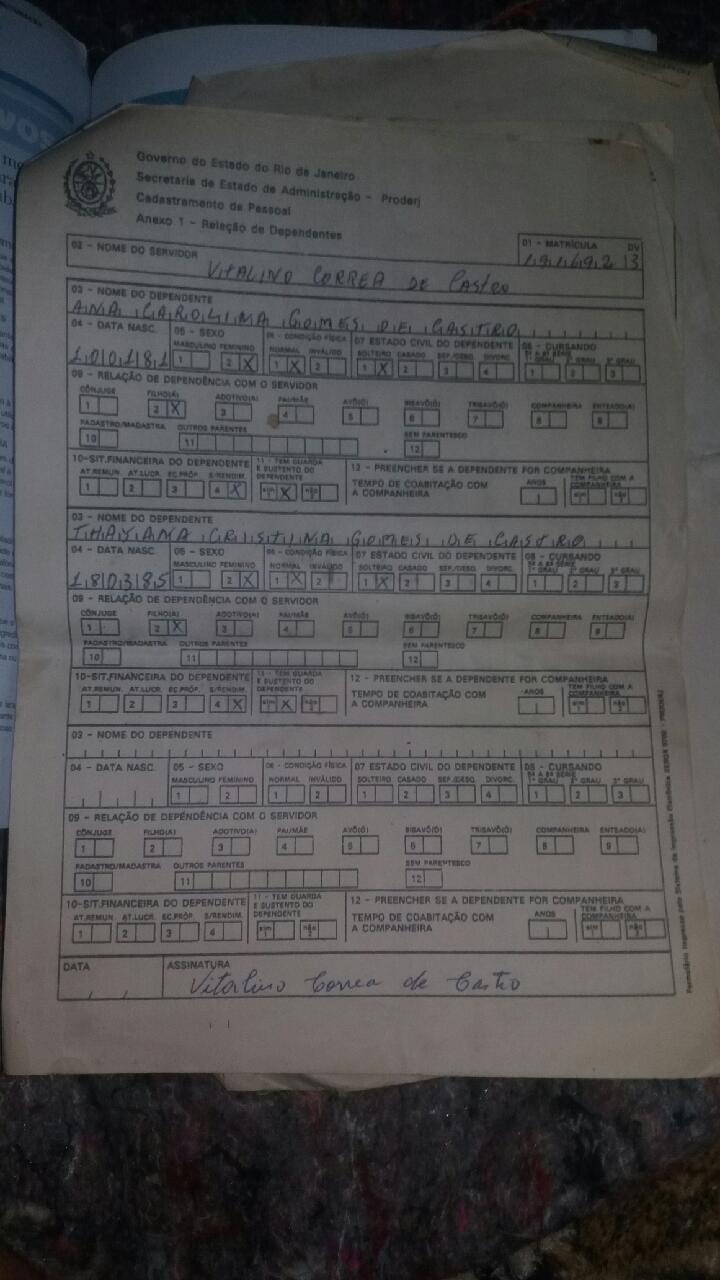 Governo do Estado do Rio de Janeiro
Secretaria de Estado de Administração - Proderj
Cadastramento de Pessoal
Anexo 1 - Relação de Dependentes
01 - MATRÍCULA DV
02 - NOME DO SERVIDOR
VITALINO CORREA DE CASTRO
03 - NOME DO DEPENDENTE
ANA CAROLINA GOMES DE CASTRO
04 - DATA NASC. 05 - SEXO 06 - CONDIÇÃO FÍSICA 07 ESTADO CIVIL DO DEPENDENTE 08 - CURSANDO
MASCULINO FEMININO NORMAL INVÁLIDO SOLTEIRO CASADO SEP./DESQ. DIVORC. 1º GRAU 2º GRAU 3º GRAU
1 0 0 1 8 1 1 2 X 1 X 2 1 X 2 3 4 1 2 3
09 - RELAÇÃO DE DEPENDÊNCIA COM O SERVIDOR
CÔNJUGE FILHO(A) ADOTIVO(A) PAI/MÃE AVÔ(Ó) BISAVÔ(Ó) TRISAVÔ(Ó) COMPANHEIRA ENTEADO(A)
1 2 X 3 4 5 6 7 8 9
PADASTRO/MADASTRA OUTROS PARENTES SEM PARENTESCO
10 11 12
10-SIT.FINANCEIRA DO DEPENDENTE 11 - TEM GUARDA E SUSTENTO DO DEPENDENTE 12 - PREENCHER SE A DEPENDENTE FOR COMPANHEIRA
AT.REMUN. AT.LUCR. EC.PRÓP. S/RENDIM. TEMPO DE COABITAÇÃO COM A COMPANHEIRA ANOS TEM FILHO COM A COMPANHEIRA
1 2 3 4 X sim 1 X não 2 sim 1 não 2
03 - NOME DO DEPENDENTE
THAYANA CRISTINA GOMES DE CASTRO
04 - DATA NASC. 05 - SEXO 06 - CONDIÇÃO FÍSICA 07 ESTADO CIVIL DO DEPENDENTE 08 - CURSANDO
MASCULINO FEMININO NORMAL INVÁLIDO SOLTEIRO CASADO SEP./DESQ. DIVORC. 1º GRAU 2º GRAU 3º GRAU
1 8 0 3 8 5 1 2 X 1 X 2 1 X 2 3 4 1 2 3
09 - RELAÇÃO DE DEPENDÊNCIA COM O SERVIDOR
CÔNJUGE FILHO(A) ADOTIVO(A) PAI/MÃE AVÔ(Ó) BISAVÔ(Ó) TRISAVÔ(Ó) COMPANHEIRA ENTEADO(A)
1 2 X 3 4 5 6 7 8 9
PADASTRO/MADASTRA OUTROS PARENTES SEM PARENTESCO
10 11 12
10-SIT.FINANCEIRA DO DEPENDENTE 11 - TEM GUARDA E SUSTENTO DO DEPENDENTE 12 - PREENCHER SE A DEPENDENTE FOR COMPANHEIRA
AT.REMUN. AT.LUCR. EC.PRÓP. S/RENDIM. TEMPO DE COABITAÇÃO COM A COMPANHEIRA ANOS TEM FILHO COM A COMPANHEIRA
1 2 3 4 X sim 1 X não 2 sim 1 não 2
03 - NOME DO DEPENDENTE
04 - DATA NASC. 05 - SEXO 06 - CONDIÇÃO FÍSICA 07 ESTADO CIVIL DO DEPENDENTE 08 - CURSANDO
MASCULINO FEMININO NORMAL INVÁLIDO SOLTEIRO CASADO SEP./DESQ. DIVORC. 1º GRAU 2º GRAU 3º GRAU
1 2 1 2 1 2 3 4 1 2 3
09 - RELAÇÃO DE DEPENDÊNCIA COM O SERVIDOR
CÔNJUGE FILHO(A) ADOTIVO(A) PAI/MÃE AVÔ(Ó) BISAVÔ(Ó) TRISAVÔ(Ó) COMPANHEIRA ENTEADO(A)
1 2 3 4 5 6 7 8 9
PADASTRO/MADASTRA OUTROS PARENTES SEM PARENTESCO
10 11 12
10-SIT.FINANCEIRA DO DEPENDENTE 11 - TEM GUARDA E SUSTENTO DO DEPENDENTE 12 - PREENCHER SE A DEPENDENTE FOR COMPANHEIRA
AT.REMUN. AT.LUCR. EC.PRÓP. S/RENDIM. TEMPO DE COABITAÇÃO COM A COMPANHEIRA ANOS TEM FILHO COM A COMPANHEIRA
1 2 3 4 sim 1 não 2 sim 1 não 2
DATA ASSINATURA
Vitalino Correa de Castro